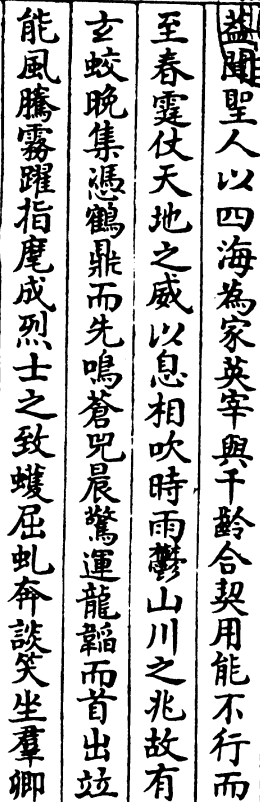 蓋聞聖人以四海為家英宰與千齡合契用能不行而
至春霆仗天地之威以息相吹時雨鬱山川之兆故有
玄蛟晚集憑鶴鼎而先鳴蒼兕晨驚運龍韜而首出竝
能風騰霧躍指麾成烈士之致蠖屈虬奔談笑坐羣卿